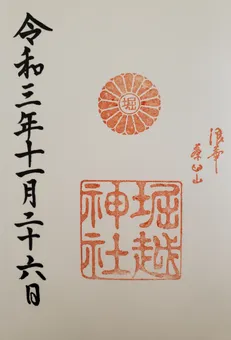 令和三年十一月二十六日
堀
浪華
茶臼山
堀越
神社